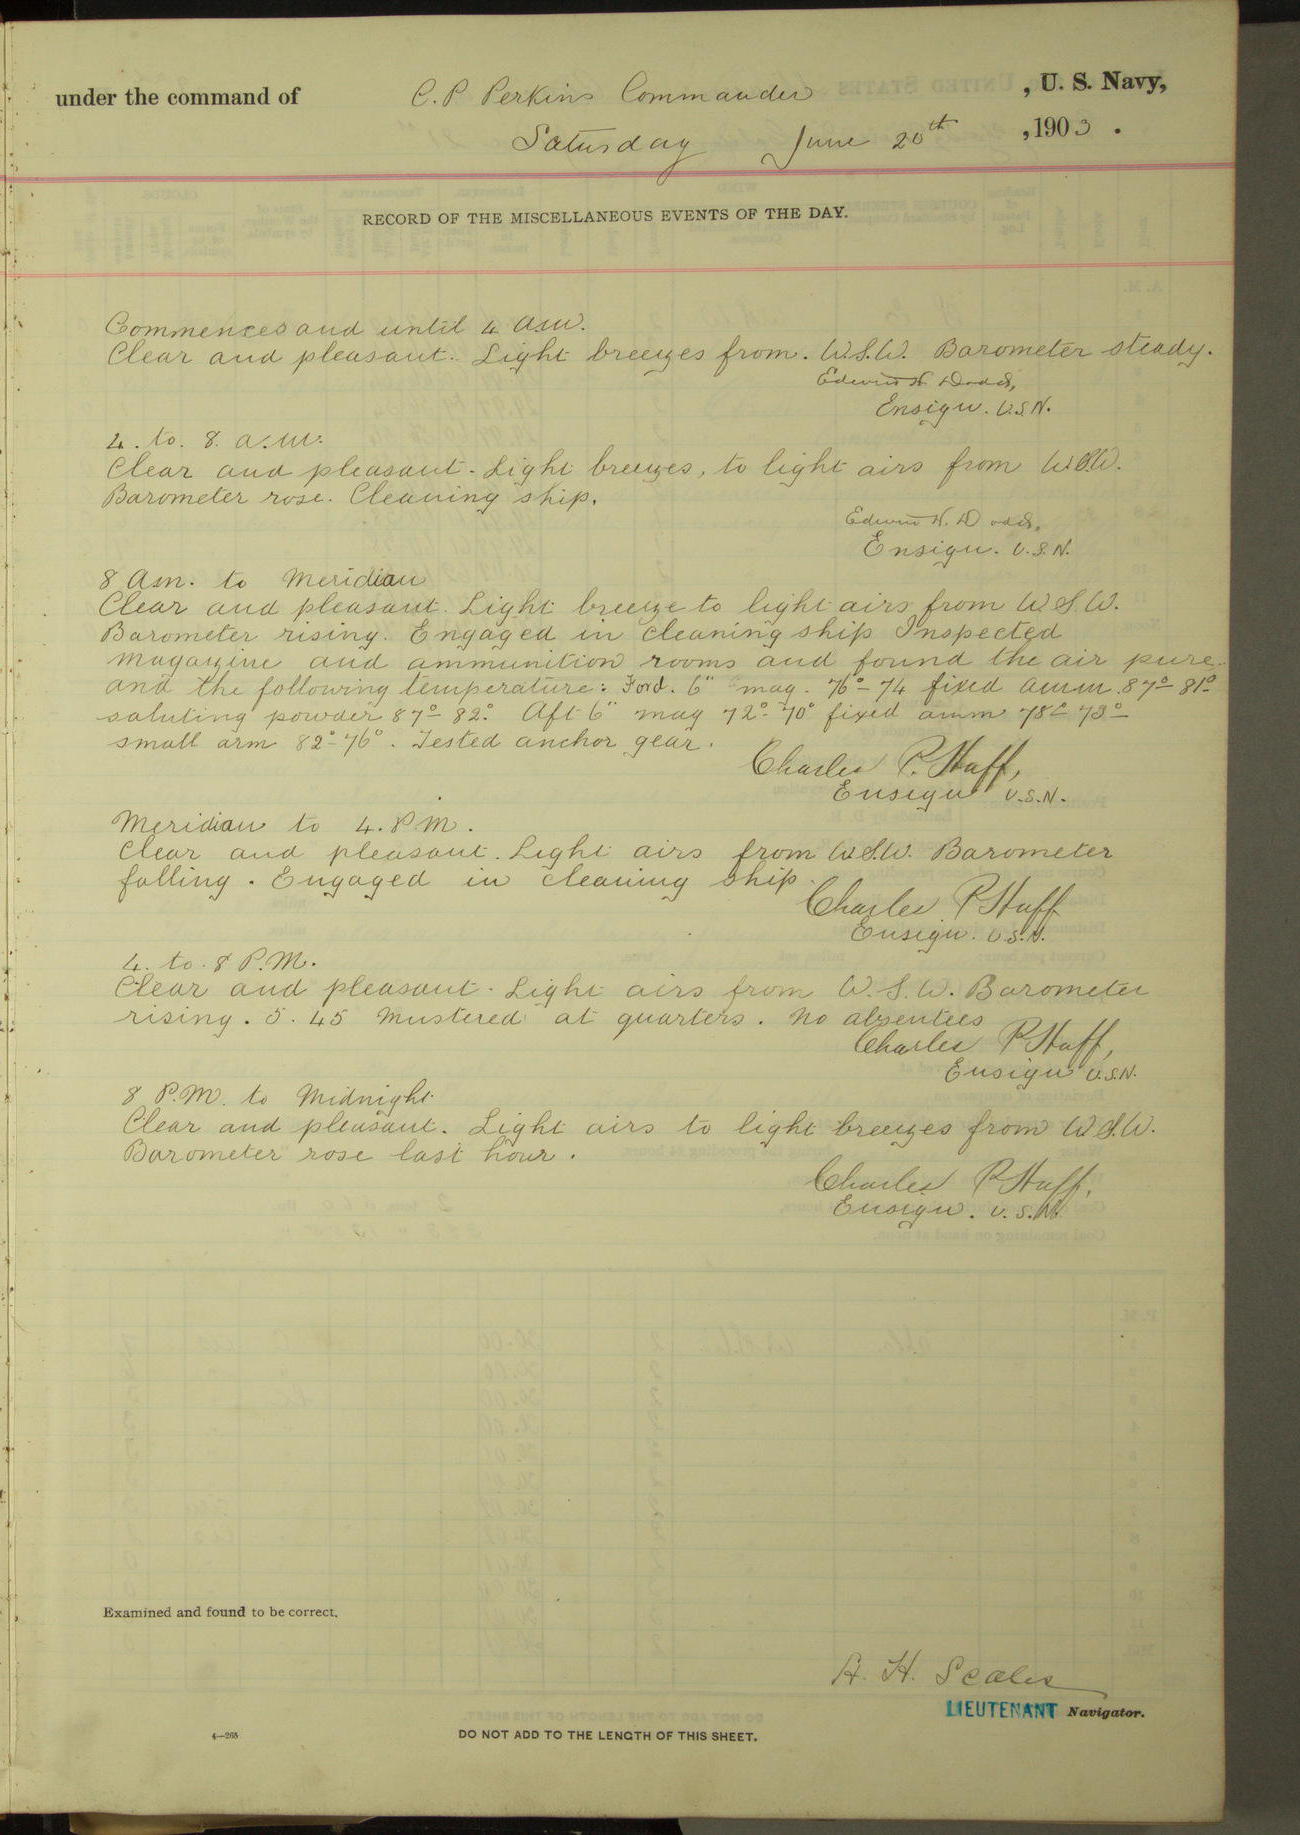 under the command of C. P. Perkins Commander , U. S. Navy,
Saturday June 20th , 1903 .
RECORD OF THE MISCELLANEOUS EVENTS OF THE DAY.
Commences and until 4 a.m.
Clear and pleasant. Light breezes from. W.S.W. Barometer steady.
Edwin H. Dodd,
Ensign. U.S.N.
4. to. 8. a.m.
Clear and pleasant. Light breezes, to light airs from W.S.W.
Barometer rose. Cleaning ship.
Edwin H. Dodd,
Ensign. U.S.N.
8 a.m. to Meridian
Clear and pleasant. Light breeze to light airs from W.S.W.
Barometer rising. Engaged in cleaning ship Inspected
magazine and ammunition rooms and found the air pure
and the following temperature: Ford. 6" mag. 76°-74 fixed amm. 87°-81°
saluting powder 87°-82°. Aft 6" mag 72°-70° fixed amm 78°-73°-
small arm 82°-76°. Tested anchor gear.
Charles P. Huff,
Ensign U.S.N.
Meridian to 4. P.M.
Clear and pleasant. Light airs from W.S.W. Barometer
falling. Engaged in cleaning ship.
Charles P Huff
Ensign. U.S.N.
4. to. 8 P.M.
Clear and pleasant. Light airs from W.S.W. Barometer
rising. 5.45 Mustered at quarters. No absentees
Charles P Huff,
Ensign U.S.N.
8 P.M. to Midnight
Clear and pleasant. Light airs to light breezes from W.S.W.
Barometer rose last hour.
Charles P Huff,
Ensign. U.S.N.
Examined and found to be correct.
A. H. Scales
LIEUTENANT Navigator.
4—265
DO NOT ADD TO THE LENGTH OF THIS SHEET.